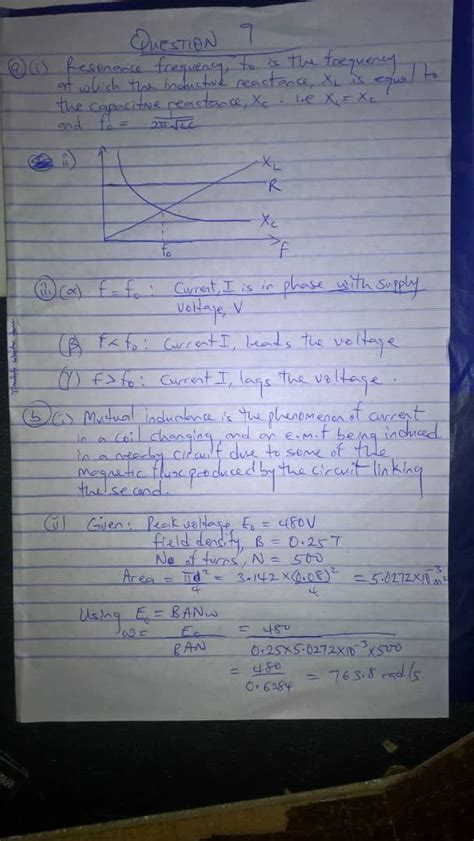 QUESTION 9
a (i) Resonance frequency, fo is the frequency
at which the inductive reactance, XL is equal to
the capacitive reactance, Xc. i.e XL = Xc
and fo = 1/2π√LC
ii)
XL
R
Xc
fo
f
iii (α) f = fo : Current, I is in phase with supply
voltage, V
(β) f < fo : Current I, leads the voltage
(γ) f > fo : Current I, lags the voltage.
b (i) Mutual inductance is the phenomenon of current
in a coil changing and an e.m.f being induced
in a nearby circuit due to some of the
magnetic flux produced by the circuit linking
the second.
(ii) Given: Peak voltage, Eo = 480V
field density, B = 0.25T
No of turns, N = 500
Area = πd²/4 = 3.142 × (0.08)²/4 = 5.0272 × 10⁻³ m²
Using Eo = BANω
ω = Eo/BAN = 480/0.25×5.0272×10⁻³×500
= 480/0.6284 = 763.8 rad/s